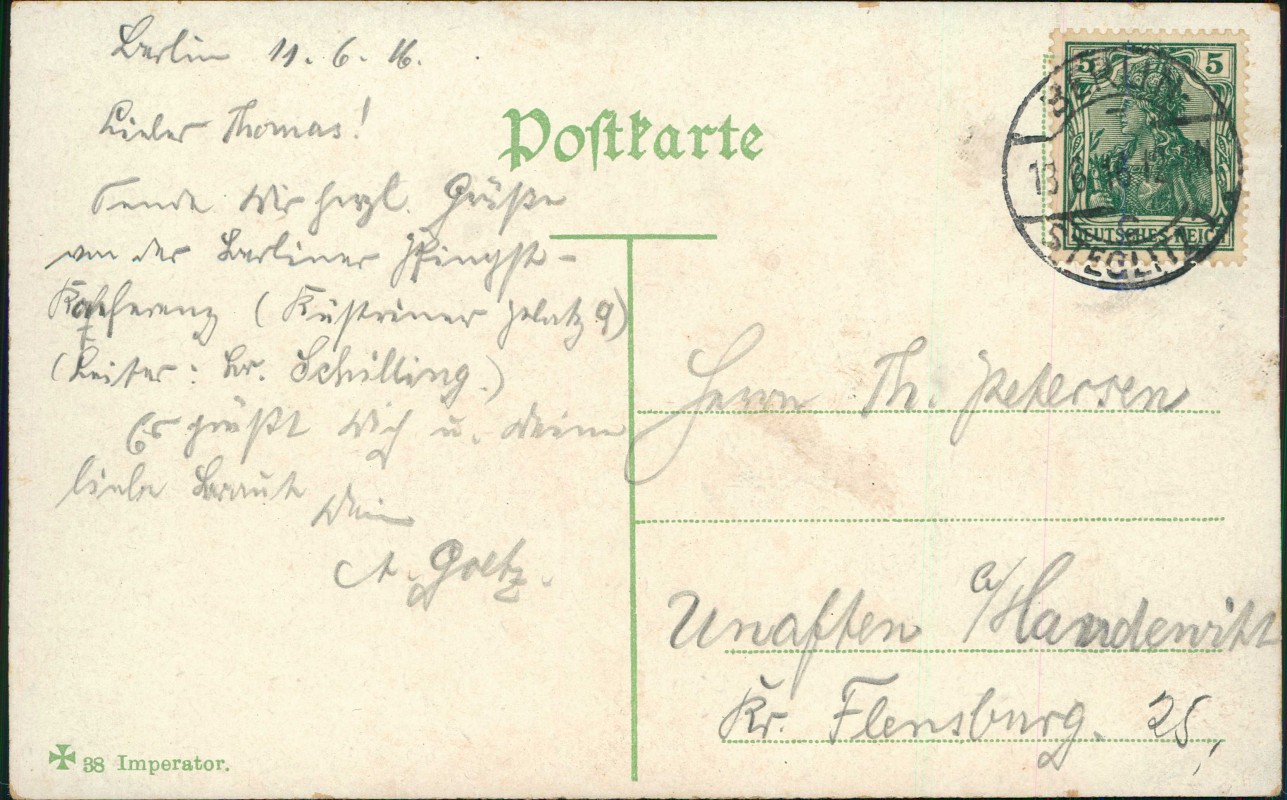 Berlin 11. 6. 16.
Lieber Thomas!
Sende Dir herzl. Grüße
von der Berliner Pfingst-
Konferenz (Küstriner Platz 9)
(Leiter: Br. Schilling.)
Es grüßt Dich u. deine
liebe Braut
Dein
A. Goetz.
38 Imperator.
Postkarte
5 5
DEUTSCHES REICH
BERLIN
13.6.16.12-
STEGLITZ
Herrn Th. Petersen
Unaften a/Handewitt
Kr. Flensburg. 25,